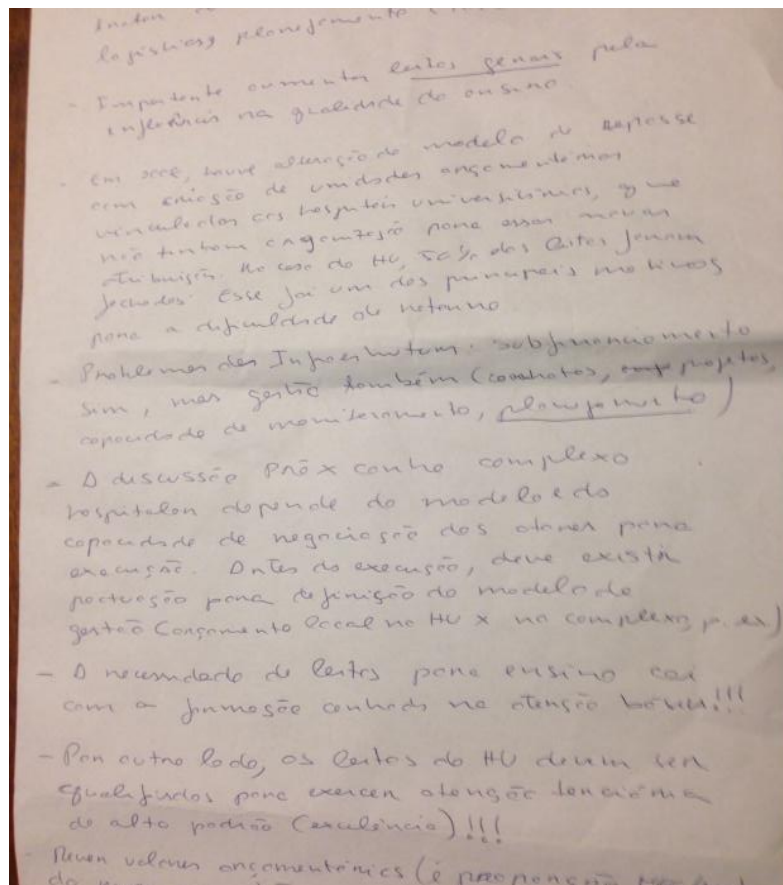 logística, planejamento
- Importante aumentar leitos gerais pela
interferência na qualidade do ensino.
- Em 2008, houve alteração do modelo de repasse
com criação de unidades orçamentárias
vinculadas aos hospitais universitários, que
não tinham organização para essas novas
atribuições. No caso do HU, 50% dos leitos foram
fechados. Esse foi um dos principais motivos
para a dificuldade de retorno
- Problemas de Infraestrutura: subfinanciamento
sim, mas gestão também (contratos, projetos,
capacidade de monitoramento, planejamento)
- A discussão Pró x contra complexo
hospitalar depende do modelo e da
capacidade de negociação dos atores para
execução. Antes da execução, deve existir
pactuação para definição do modelo de
gestão (orçamento local no HU x no complexo, p. ex.)
- A necessidade de leitos para ensino cai
com a formação centrada na atenção básica!!!
- Por outro lado, os leitos do HU devem ser
qualificados para exercer atenção terciária
de alto padrão (excelência)!!!
- Rever valores orçamentários (é proporção